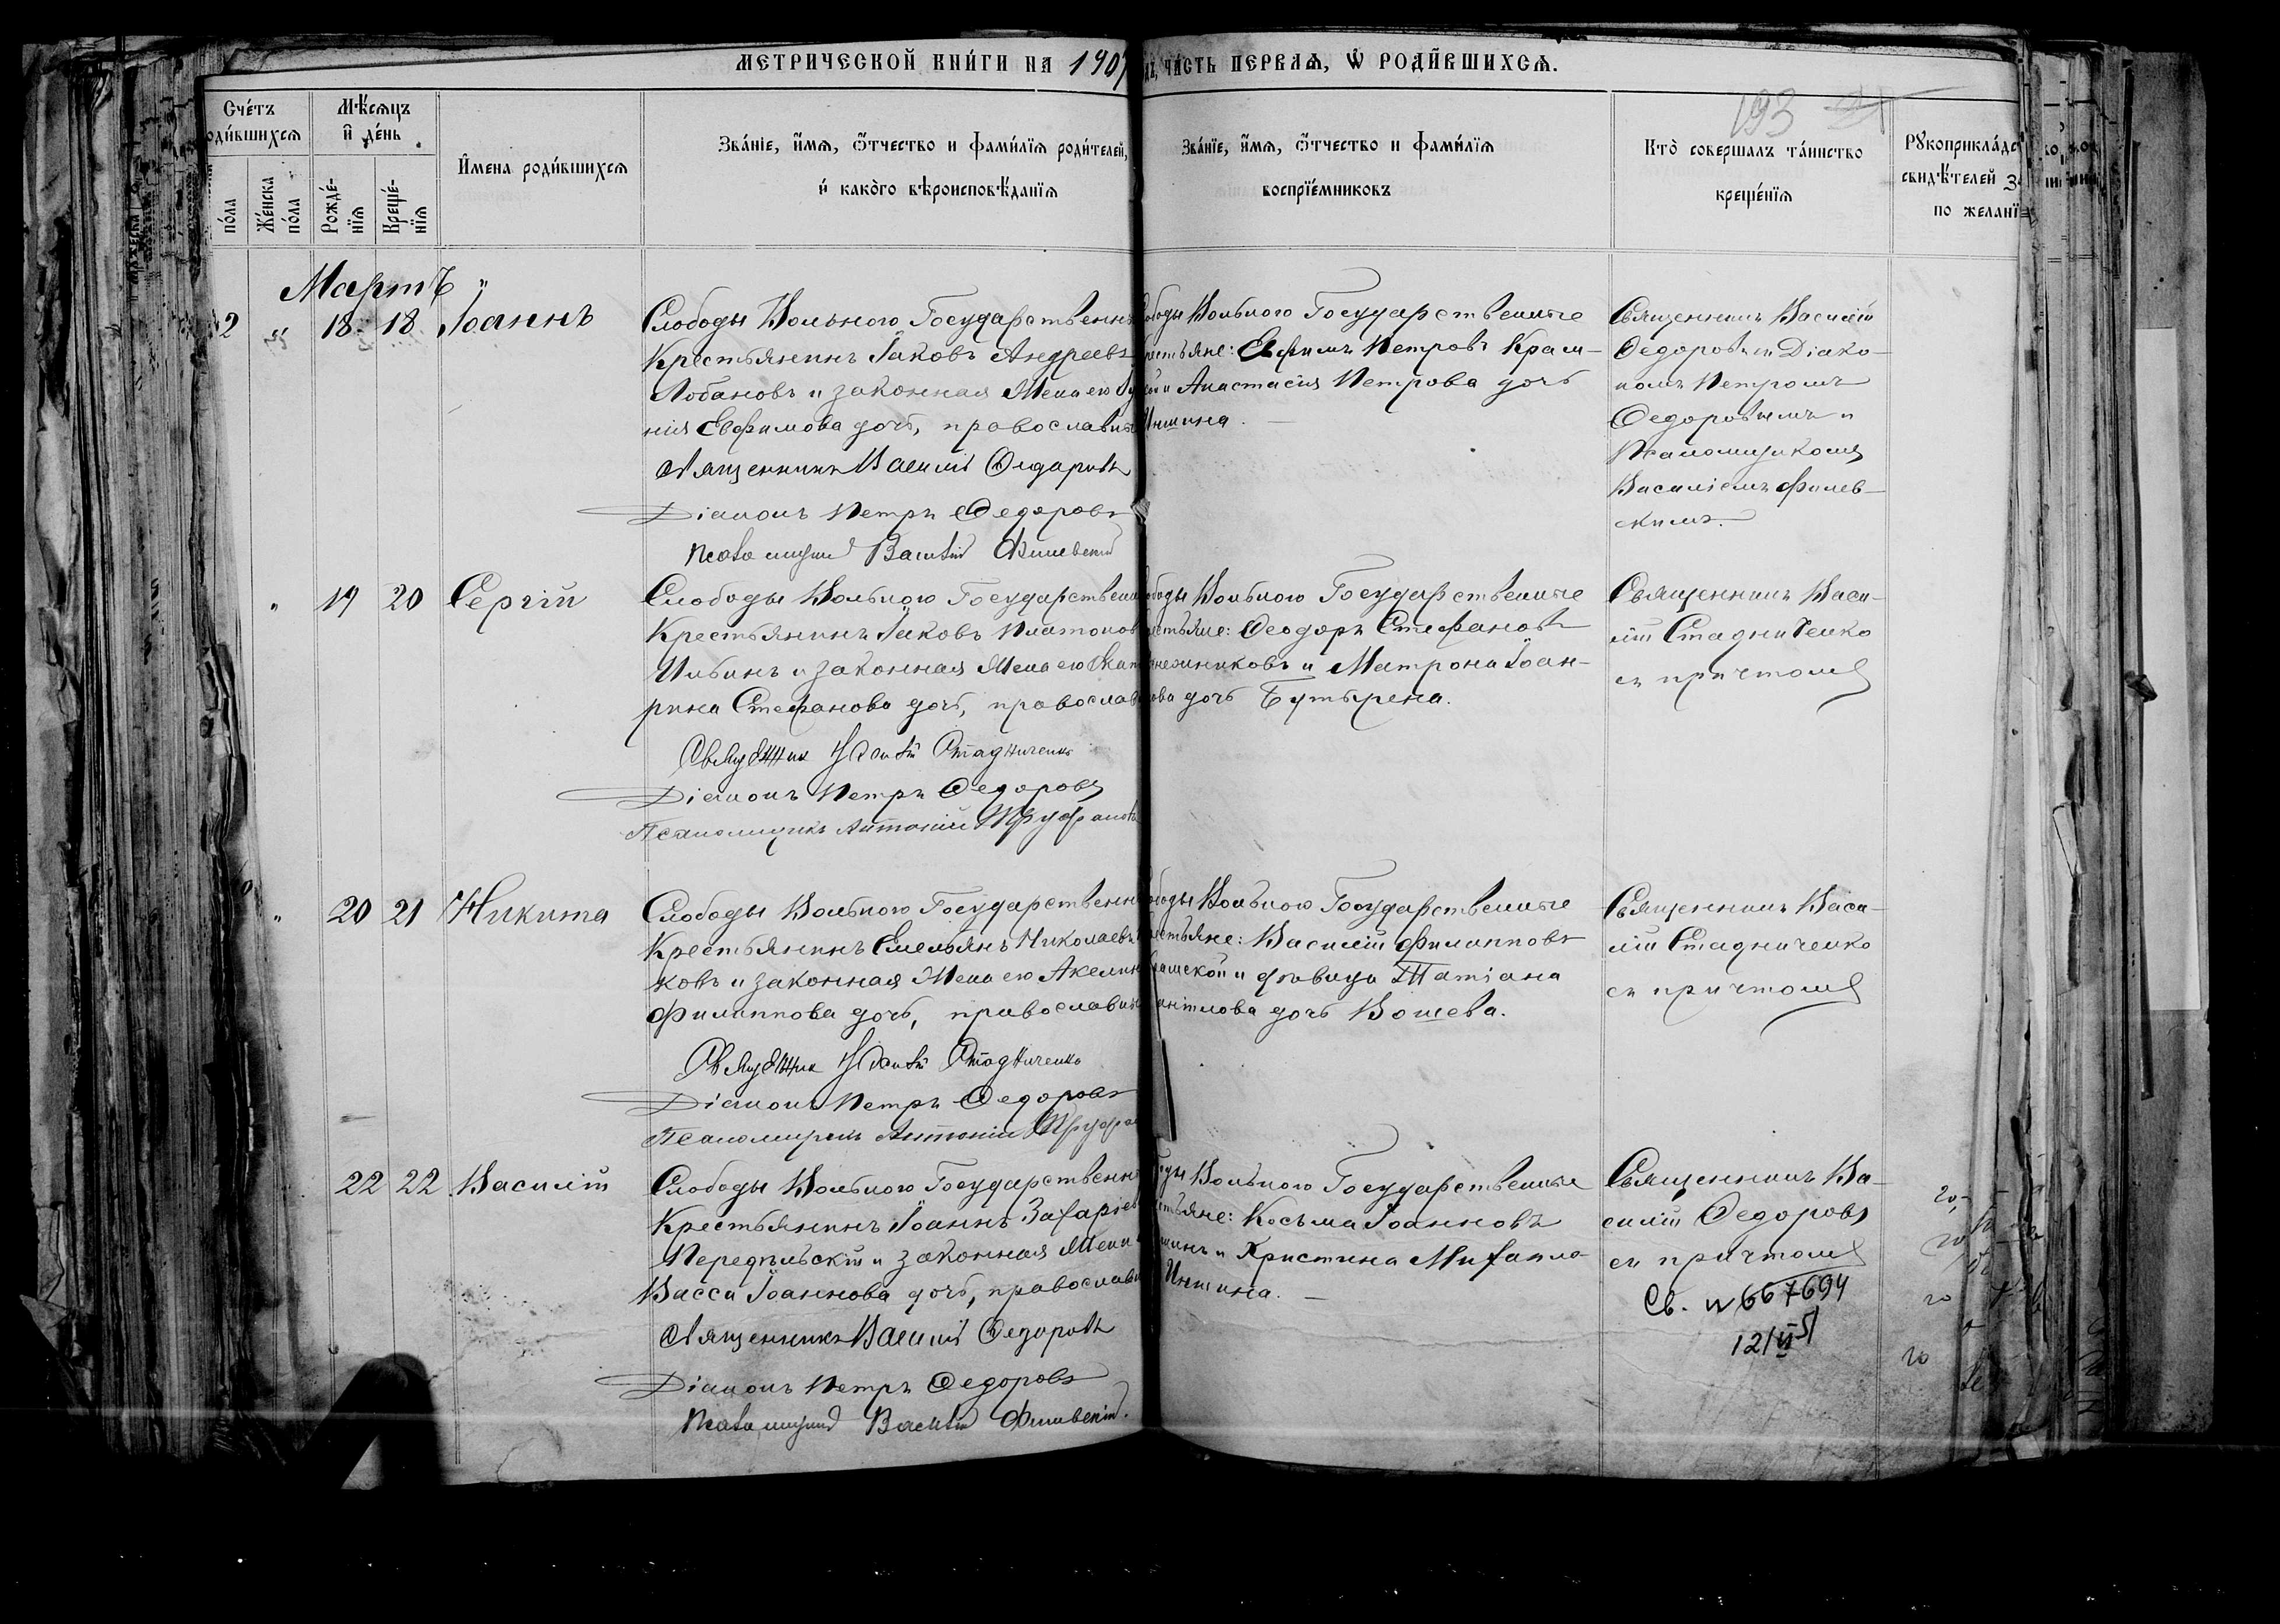 МЕТРИЧЕСКОЙ КНИ́ГИ НА 1907
ЧА́СТЬ ПЕРВАѦ, Ѡ҆ РОДИ́ВШИХСѦ.
193
Сче́тъ
оди́вшихсѧ
по́ла
Же́нска по́ла
Мѣ́сѧцъ
и҆ де́нь
Рожде́-нїѧ
Креще́-нїѧ
И҆мена роди́вшихсѧ
Зва́нїе, и҆́мѧ, ѻ҆́тчество и фами́лїѧ роди́телей,
и҆ како́го вѣроисповѣ́данїѧ
Зва́нїе, и҆́мѧ, ѻ҆́тчество и фами́лїѧ
воспрїе́мниковъ
Кто̀ соверша́лъ та́инство
креще́нїѧ
Рꙋкоприкла́дс
свидѣ́телей
по желані
Мартъ
2 " 18. 18. Іоаннъ
Слободы Вольного Государственн
Крестьянинъ Іаковъ Андреевъ
Лобановъ и законная Жена его
нія Евфимова дочь, православн
Священникъ Василій Федоровъ
Діаконъ Петръ Федоровъ
Псаломщикъ Василій Филевскій
ободы Вольного Государственные
рестьяне: Евфимъ Петровъ Крам-
и Анастасія Петрова дочь
Иншина. —
Священникъ Василій
Федоровъ съ Діако-
номъ Петромъ
Федоровымъ и
Псаломщикомъ
Василіемъ Филев-
скимъ.
" 19 20 Сергій
Слободы Вольного Государственн
Крестьянинъ Іаковъ Платонов
Ильинъ и законная Жена его Екате
рина Стефанова дочь, православ
Священник Василій Стадниченко
Діаконъ Петръ Федоровъ
Псаломщикъ Антоній Труфановъ
ободы Вольного Государственные
рестьяне: Феодоръ Стефановъ
и Матрона Іоан-
нова дочь Бутырена.
Священникъ Васи-
лій Стадниченко
съ причтомъ
" 20 21 Никита
Слободы Вольного Государственн
Крестьянинъ Емельянъ Николаевъ
ковъ и законная Жена его Акелин
Филиппова дочь, православн
Священник Василій Стадниченко
Діаконъ Петръ Федоровъ
Псаломщикъ Антоній Труфан
ободы Вольного Государственные
рестьяне: Василій Филипповъ
и дѣвица Татіана
дочь Вошева.
Священникъ Васи-
лій Стадниченко
съ причтомъ
22 22 Василій
Слободы Вольного Государственн
Крестьянинъ Іоаннъ Захаріев
Передѣльскій и законная Жена
Васса Іоаннова дочь, православн
Священникъ Василій Федоровъ
Діаконъ Петръ Федоровъ
Псаломщикъ Василій Филевскій.
оды Вольного Государственные
естьяне: Косьма Іоанновъ
шинъ и Христина Михаило-
Иншина. —
Священникъ Ва-
силій Федоровъ
съ причтомъ
Св. № 667694
12/VI 51